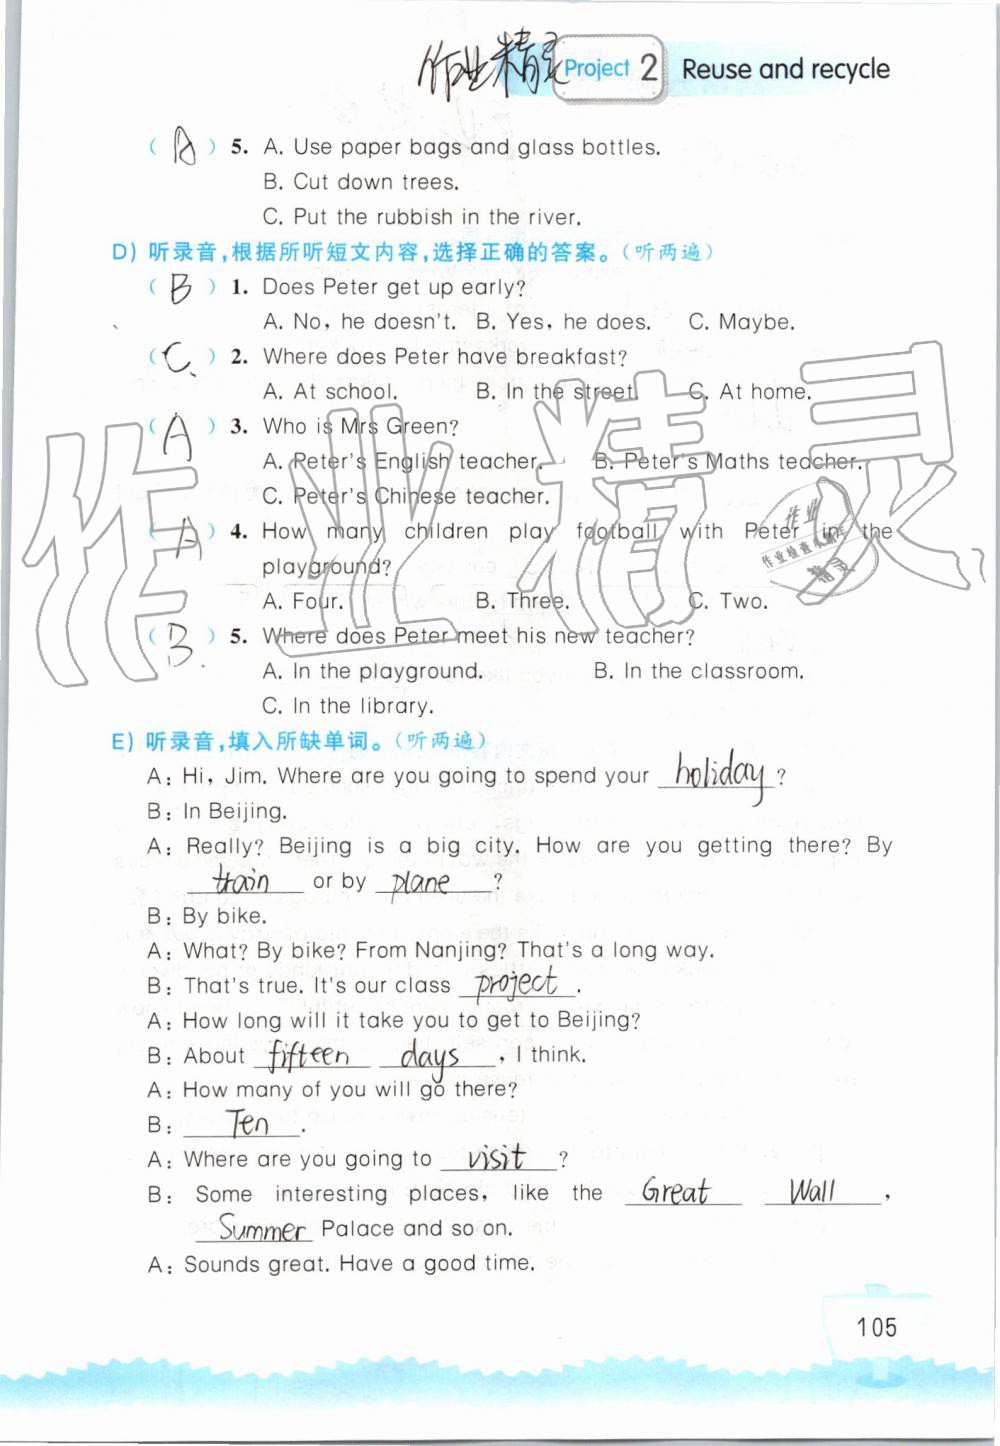 作业精灵 Project 2 Reuse and recycle
( A ) 5. A. Use paper bags and glass bottles.
B. Cut down trees.
C. Put the rubbish in the river.
D) 听录音,根据所听短文内容,选择正确的答案。(听两遍)
( B ) 1. Does Peter get up early?
A. No, he doesn't. B. Yes, he does. C. Maybe.
( C ) 2. Where does Peter have breakfast?
A. At school. B. In the street. C. At home.
( A ) 3. Who is Mrs Green?
A. Peter's English teacher. B. Peter's Maths teacher.
C. Peter's Chinese teacher.
( A ) 4. How many children play football with Peter in the
playground?
A. Four. B. Three. C. Two.
( B ) 5. Where does Peter meet his new teacher?
A. In the playground. B. In the classroom.
C. In the library.
E) 听录音,填入所缺单词。(听两遍)
A: Hi, Jim. Where are you going to spend your holiday ?
B: In Beijing.
A: Really? Beijing is a big city. How are you getting there? By
train or by plane ?
B: By bike.
A: What? By bike? From Nanjing? That's a long way.
B: That's true. It's our class project .
A: How long will it take you to get to Beijing?
B: About fifteen days , I think.
A: How many of you will go there?
B: Ten .
A: Where are you going to visit ?
B: Some interesting places, like the Great Wall ,
Summer Palace and so on.
A: Sounds great. Have a good time.
105
作业精灵